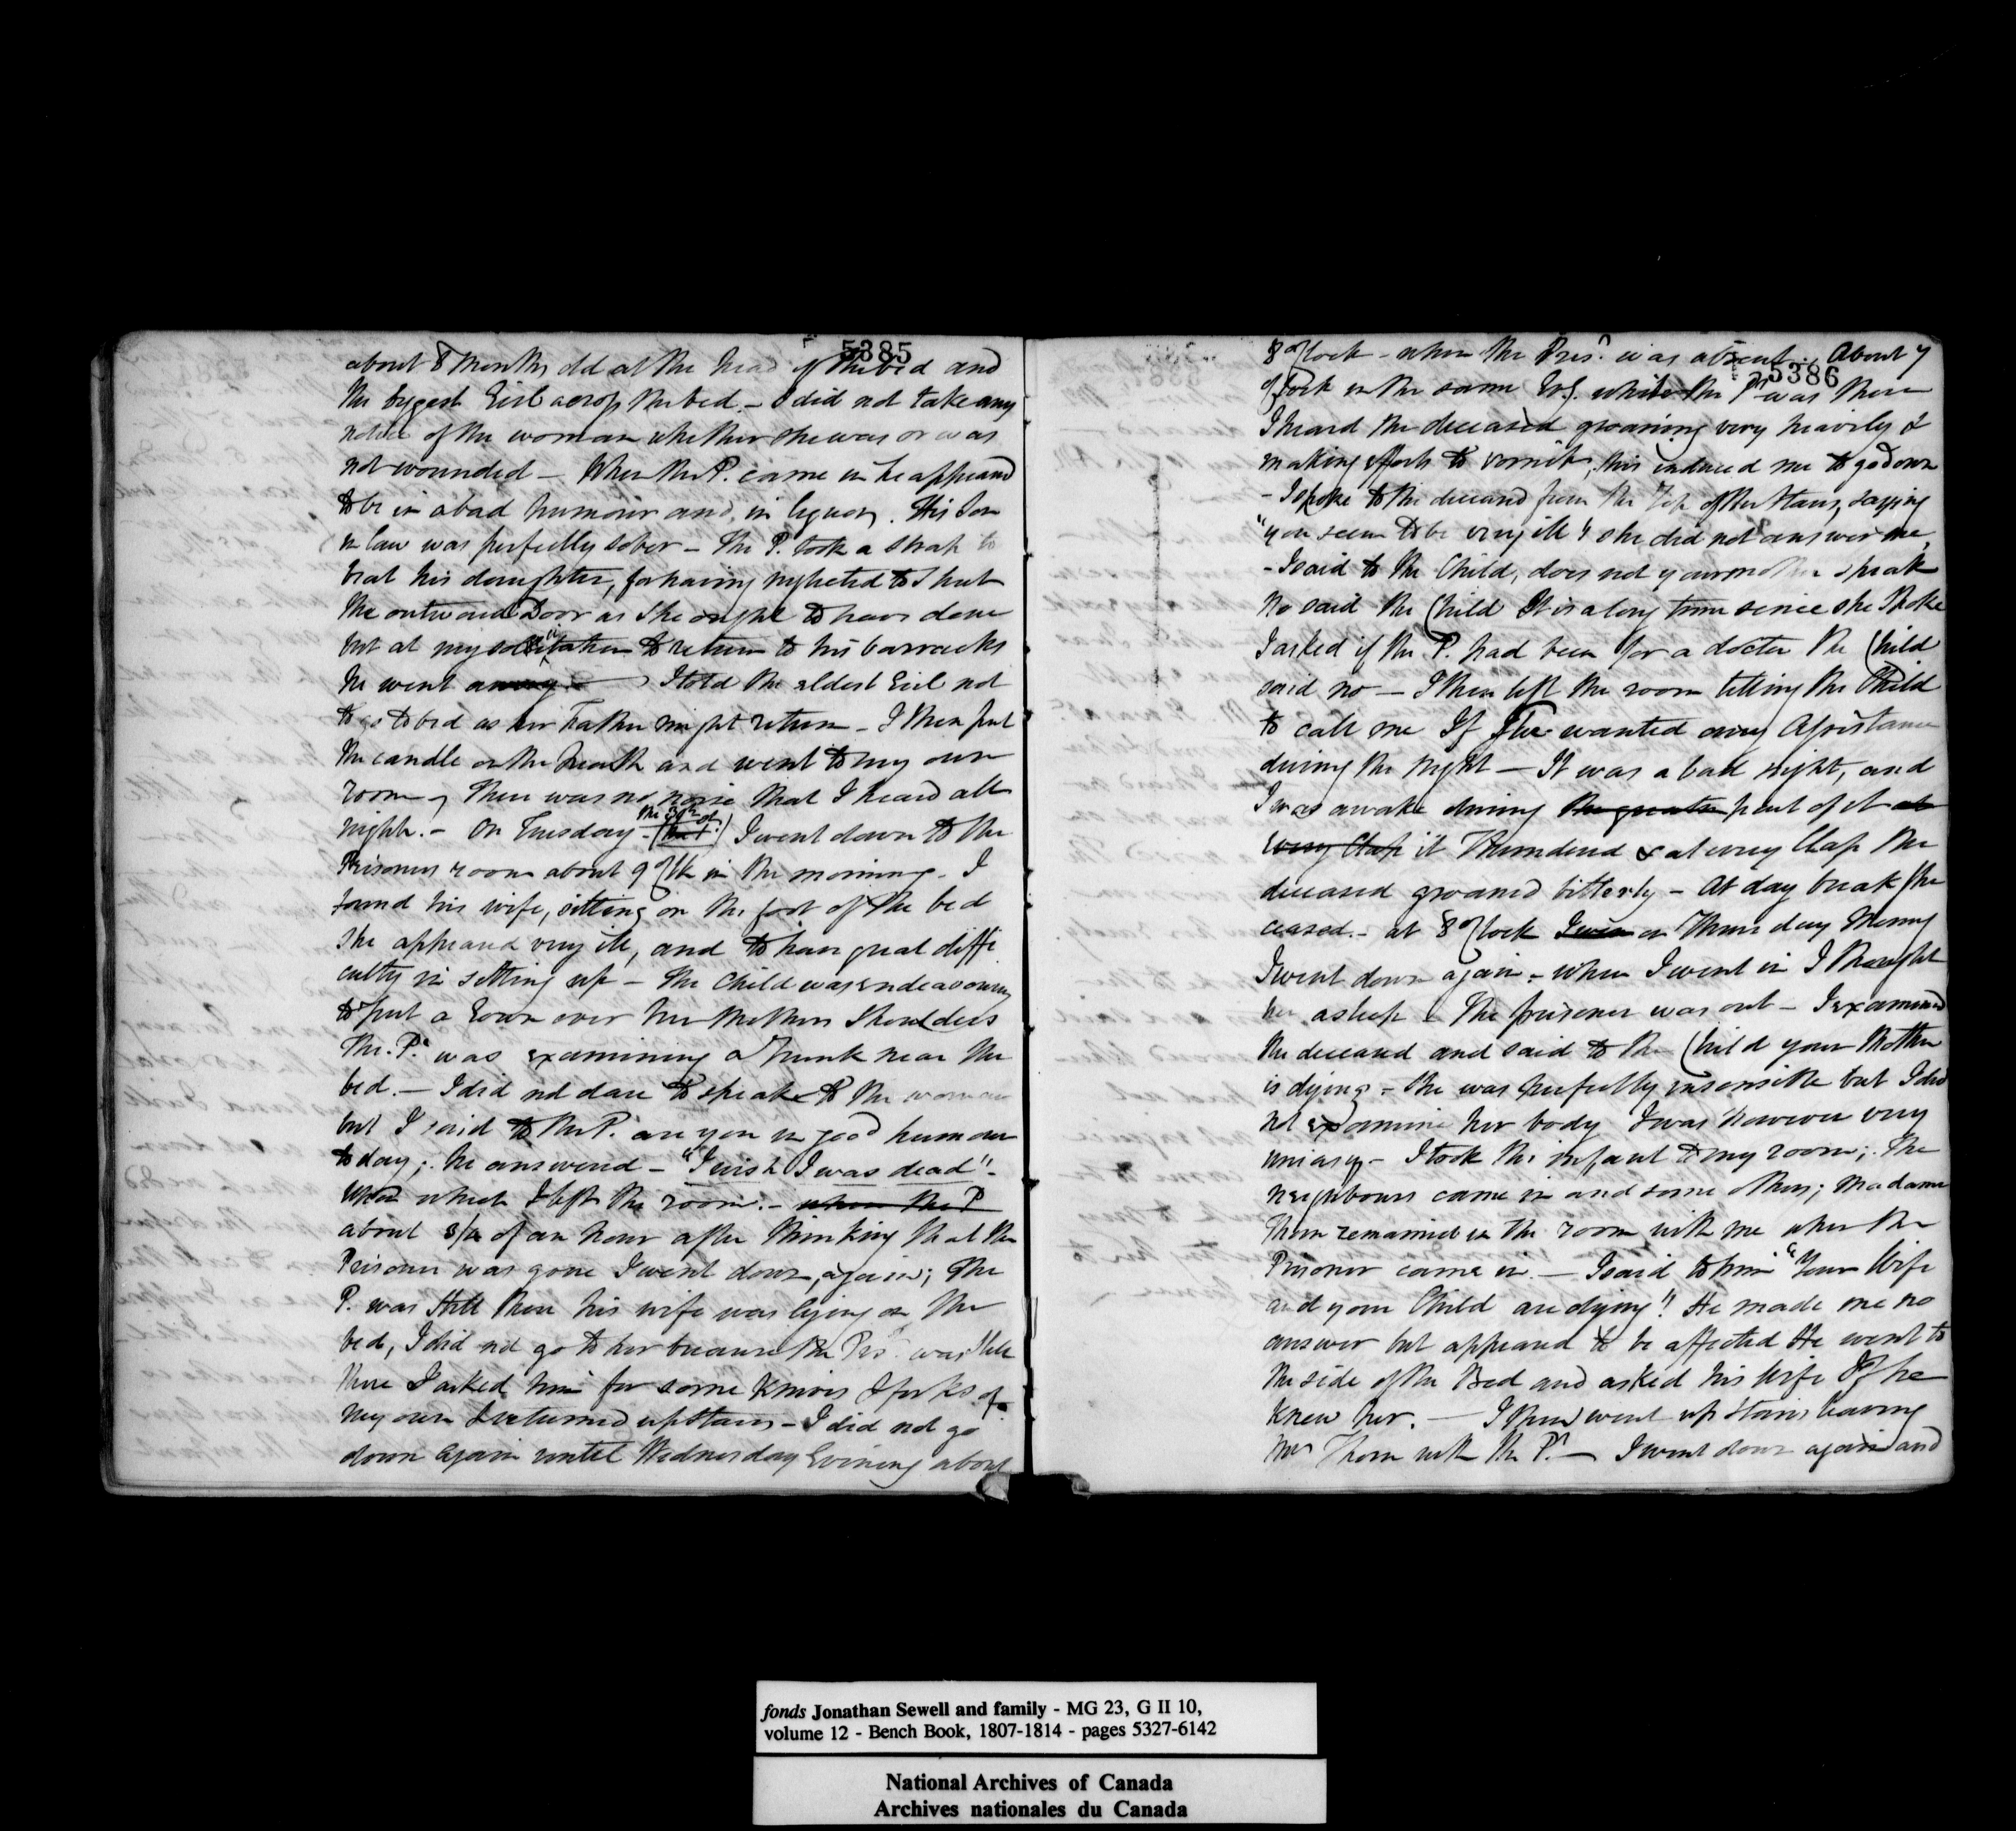 5385
about 8 Months old at the head of the bed and
the biggest Girl across the bed. - I did not take any
notice of the woman whether she was or was
not wounded - When the P. came in he appeared
to be in a bad humour and, in liquor. His Son
in law was perfectly sober - The P. took a strap to
beat his daughter, for having neglected to shut
the outward Door as she ought to have done
but at my solicitation to return to his barracks
he went away - I told the eldest Girl not
to go to bed as her Father might return - I then put
the candle on the hearth and went to my own
room - There was no noise that I heard all
night. - On Tuesday I went down to the
Prisoners room about 9 o'Clk in the morning - I
found his wife, sitting on the foot of the bed
she appeared very ill, and to have great diffi
culty in sitting up - The Child was endeavouring
to put a Gown over her Mothers Shoulders
The P. was examining a Trunk near the
bed. - I did not dare to speak to the woman
but I said to the P. are you in good humour
to day; he answered - "I wish I was dead" -
upon which I left the room. - when the P
about 3/4 of an hour after thinking that the
Prisoner was gone I went down, again; The
P. was still there his wife was lying on the
bed, I did not go to her because the Pris. was still
there I asked him for some Knives & forks of
my own & returned upstairs - I did not go
down again until Wednesday Evening about
5386
8 o'Clock - when the Pris.r was absent. About 7
o'Clock in the same Evg. while the Pr was there
I heard the deceased groaning very heavily &
making efforts to vomit, this induced me to go down
- I spoke to the deceased from the Top of the Stairs, saying
"you seem to be very ill" she did not answer me,
- I said to the Child, does not your mother speak
No said the Child It is a long time since she Spoke
I asked if the P. had been for a doctor the Child
said no - I then left the room telling the Child
to call me If She wanted any Assistance
during the Night - It was a bad night, and
I was awake during the greater part of it at
every Clap it Thundered & at every Clap the
deceased groaned bitterly - At day break She
ceased. - at 8 o'Clock I was on Thursday Morng
I went down again - when I went in I thought
her asleep & The prisoner was out - I examined
the deceased and said to the Child your Mother
is dying - She was perfectly insensible but I did
not examine her body I was however very
uneasy - I took the infant to my room; The
neighbours came in and some others; Madame
Thom remained in the room with me when the
Prisoner came in. - I said to him "Your Wife
and your Child are dying". He made me no
answer but appeared to be affected He went to
the side of the Bed and asked his Wife If he
knew her. - I then went up Stairs leaving
Mrs Thom with the Pr. - I went down again and
fonds Jonathan Sewell and family - MG 23, G II 10,
volume 12 - Bench Book, 1807-1814 - pages 5327-6142
National Archives of Canada
Archives nationales du Canada